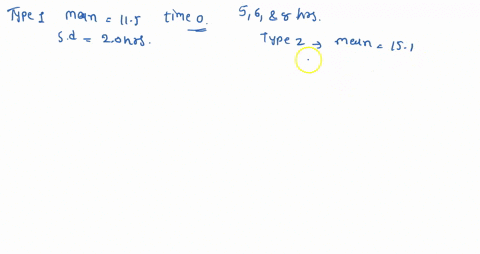 Type 1 mean = 11.5 time 0. 5, 6, & 8 hrs.
s.d = 2.0 hrs. Type 2 → mean = 15.1